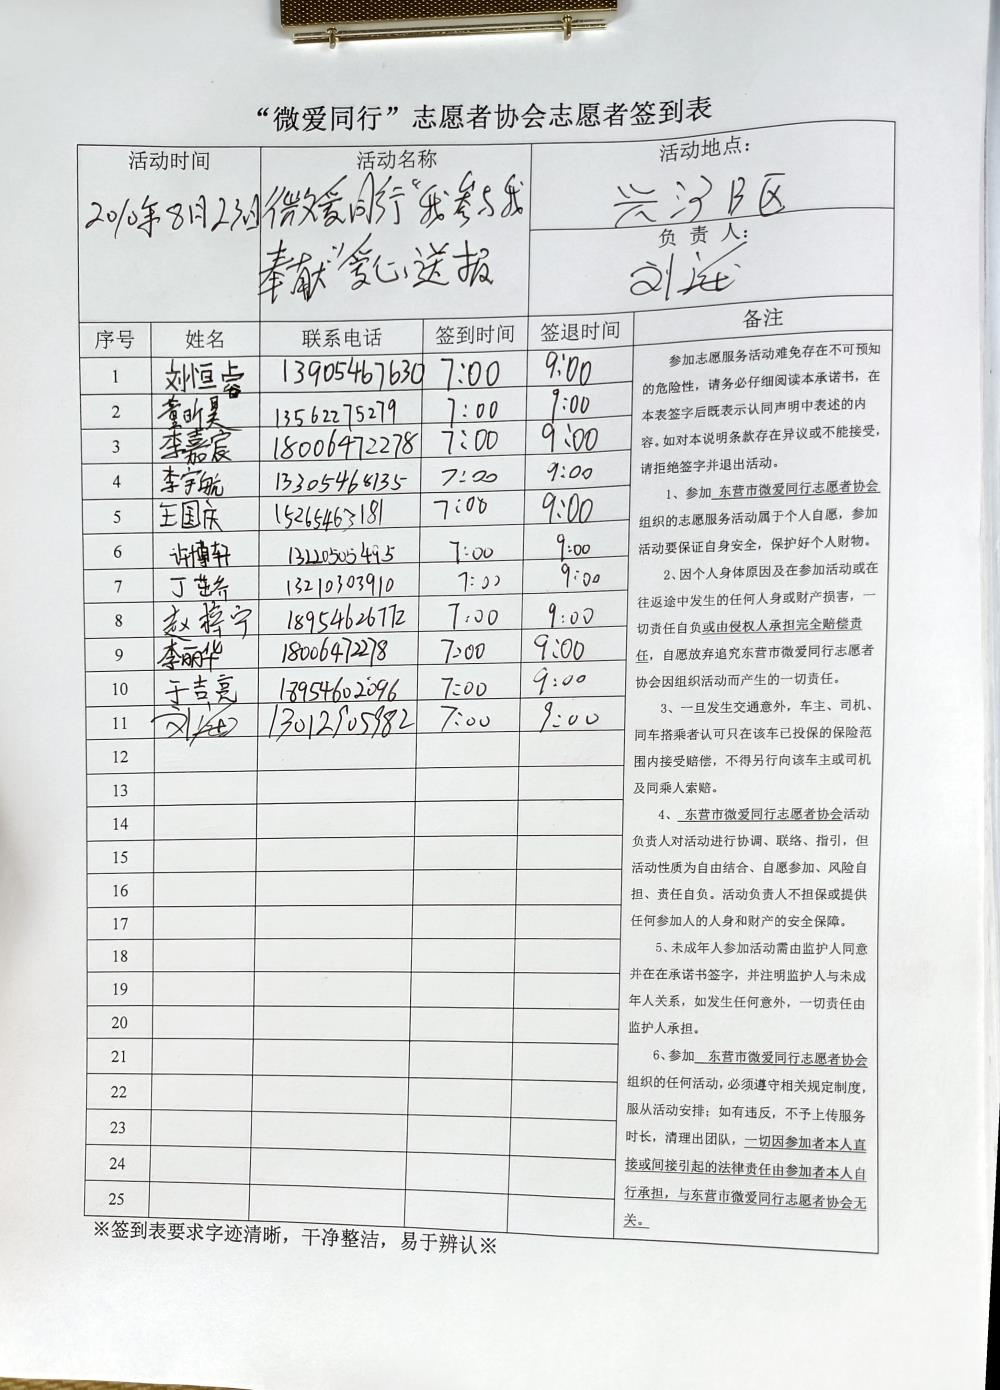 “微爱同行”志愿者协会志愿者签到表
活动时间 活动名称 活动地点：
年8月23日 微爱同行“我参与我 兴河B区
奉献”爱心送报
负责人：
刘
序号 姓名 联系电话 签到时间 签退时间 备注
1 刘恒睿 13905467630 7:00 9:00
2 董昕昊 13562275279 7:00 9:00
3 李嘉宸 18006472278 7:00 9:00
4 李宇航 13305468135 7:00 9:00
5 王国庆 15265463181 7:00 9:00
6 许博轩 13220505495 7:00 9:00
7 丁 13210303910 7:00 9:00
8 赵梓宁 18954626772 7:00 9:00
9 李丽华 18006472278 7:00 9:00
10 于吉亮 18954602096 7:00 9:00
11 刘 13012905982 7:00 9:00
12
13
14
15
16
17
18
19
20
21
22
23
24
25
参加志愿服务活动难免存在不可预知
的危险性，请务必仔细阅读本承诺书，在
本表签字后既表示认同声明中表述的内
容。如对本说明条款存在异议或不能接受，
请拒绝签字并退出活动。
1、参加 东营市微爱同行志愿者协会
组织的志愿服务活动属于个人自愿，参加
活动要保证自身安全，保护好个人财物。
2、因个人身体原因及在参加活动或在
往返途中发生的任何人身或财产损害，一
切责任自负或由侵权人承担完全赔偿责
任，自愿放弃追究东营市微爱同行志愿者
协会因组织活动而产生的一切责任。
3、一旦发生交通意外，车主、司机、
同车搭乘者认可只在该车已投保的保险范
围内接受赔偿，不得另行向该车主或司机
及同乘人索赔。
4、 东营市微爱同行志愿者协会活动
负责人对活动进行协调、联络、指引，但
活动性质为自由结合、自愿参加、风险自
担、责任自负。活动负责人不担保或提供
任何参加人的人身和财产的安全保障。
5、未成年人参加活动需由监护人同意
并在在承诺书签字，并注明监护人与未成
年人关系，如发生任何意外，一切责任由
监护人承担。
6、参加 东营市微爱同行志愿者协会
组织的任何活动，必须遵守相关规定制度，
服从活动安排；如有违反，不予上传服务
时长，清理出团队，一切因参加者本人直
接或间接引起的法律责任由参加者本人自
行承担，与东营市微爱同行志愿者协会无
关。
※签到表要求字迹清晰，干净整洁，易于辨认※